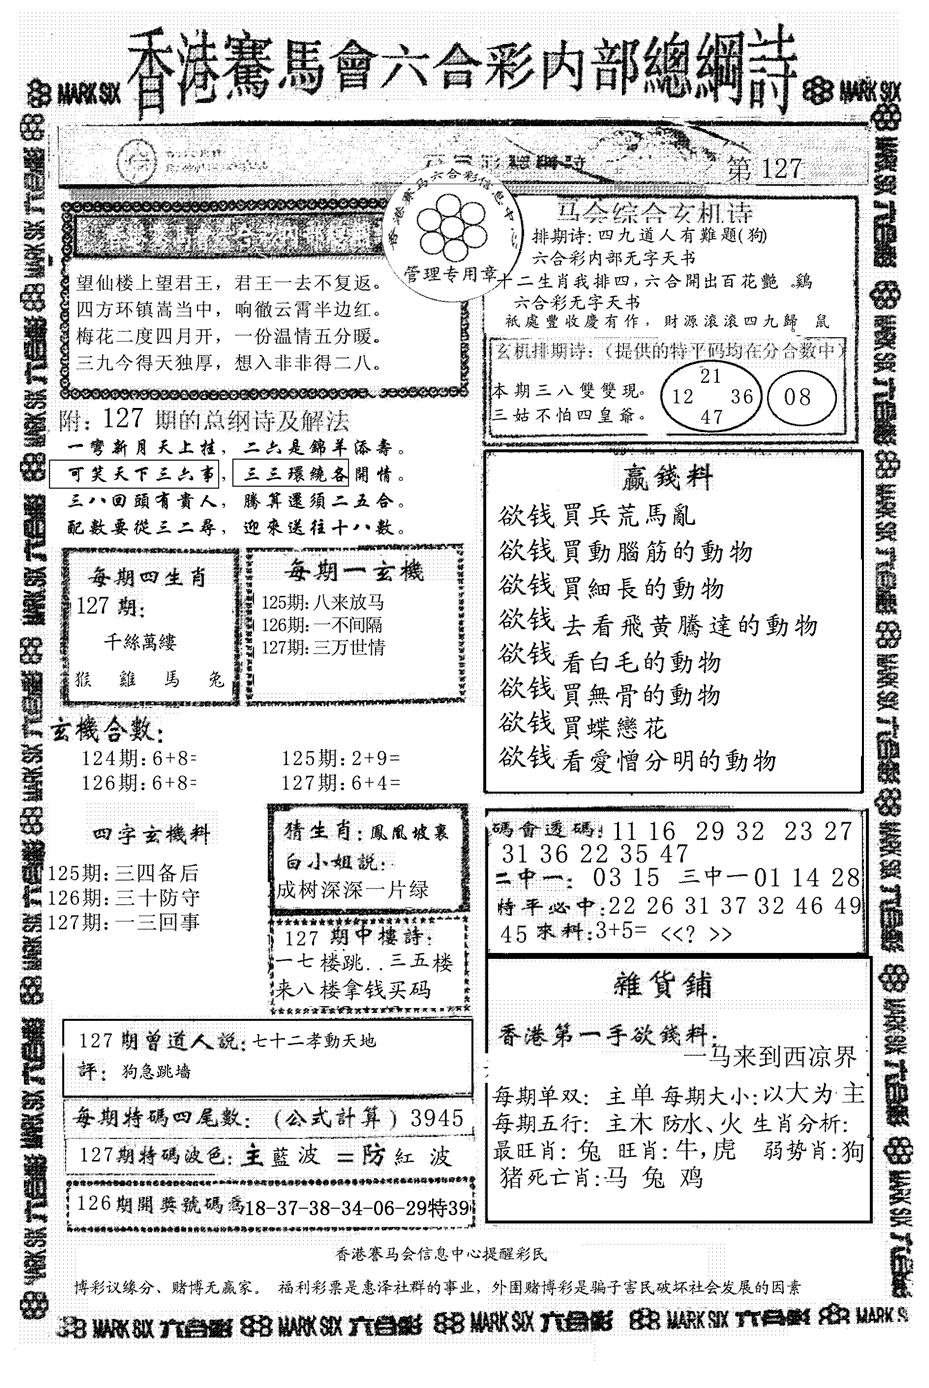 香港賽馬會六合彩内部總綱詩
MARK SIX
MARK SIX
第 127
香港赛马六合彩信息中心
管理专用章
望仙楼上望君王，君王一去不复返。
四方环镇嵩当中，响徹云霄半边红。
梅花二度四月开，一份温情五分暖。
三九今得天独厚，想入非非得二八。
马会综合玄机诗
排期诗：四九道人有難題(狗)
六合彩内部无字天书
十二生肖我排四，六合開出百花艷。鷄
六合彩无字天书
祇處豐收慶有作，財源滾滾四九歸 鼠
玄机排期诗：（提供的特平码均在分合数中）
本期三八雙雙現。
三姑不怕四皇爺。
21
12 36
47
08
附：127 期的总纲诗及解法
一彎新月天上挂，二六是錦羊添壽。
可笑天下三六事，三三環繞各開情。
三八回頭有貴人，勝算還須二五合。
配數要從三二尋，迎來送往十八數。
每期四生肖
127 期：
千絲萬缕
猴 雞 馬 兔
每期一玄機
125期：八来放马
126期：一不间隔
127期：三万世情
赢錢料
欲钱買兵荒馬亂
欲钱買動腦筋的動物
欲钱買細長的動物
欲钱去看飛黄騰達的動物
欲钱看白毛的動物
欲钱買無骨的動物
欲钱買蝶戀花
欲钱看愛憎分明的動物
玄機合數：
124期：6+8= 125期：2+9=
126期：6+8= 127期：6+4=
四字玄機料
125期：三四备后
126期：三十防守
127期：一三回事
猜生肖：鳳凰坡裏
白小姐説：
成树深深一片绿
127 期中樓詩：
一七楼跳..三五楼
来八楼拿钱买码
碼會透碼：11 16 29 32 23 27
31 36 22 35 47
二中一：03 15 三中一 01 14 28
特平必中：22 26 31 37 32 46 49
45 來料：3+5= <<? >>
雜貨鋪
香港第一手欲錢料：
一马来到西凉界
每期单双：主单 每期大小：以大为主
每期五行：主木 防水、火 生肖分析：
最旺肖：兔 旺肖：牛，虎 弱势肖：狗
猪 死亡肖：马 兔 鸡
127期曾道人説：七十二孝動天地
評：狗急跳墙
每期特碼四尾數：（公式計算）3945
127期特碼波色：主藍波 =防紅波
126期開獎號碼爲18-37-38-34-06-29特39
香港赛马会信息中心提醒彩民
博彩议缘分、赌博无赢家。 福利彩票是惠泽社群的事业，外围赌博彩是骗子害民破坏社会发展的因素
MARK SIX 六合彩 MARK SIX 六合彩 MARK SIX 六合彩 MARK SIX 六合彩 MARK SIX